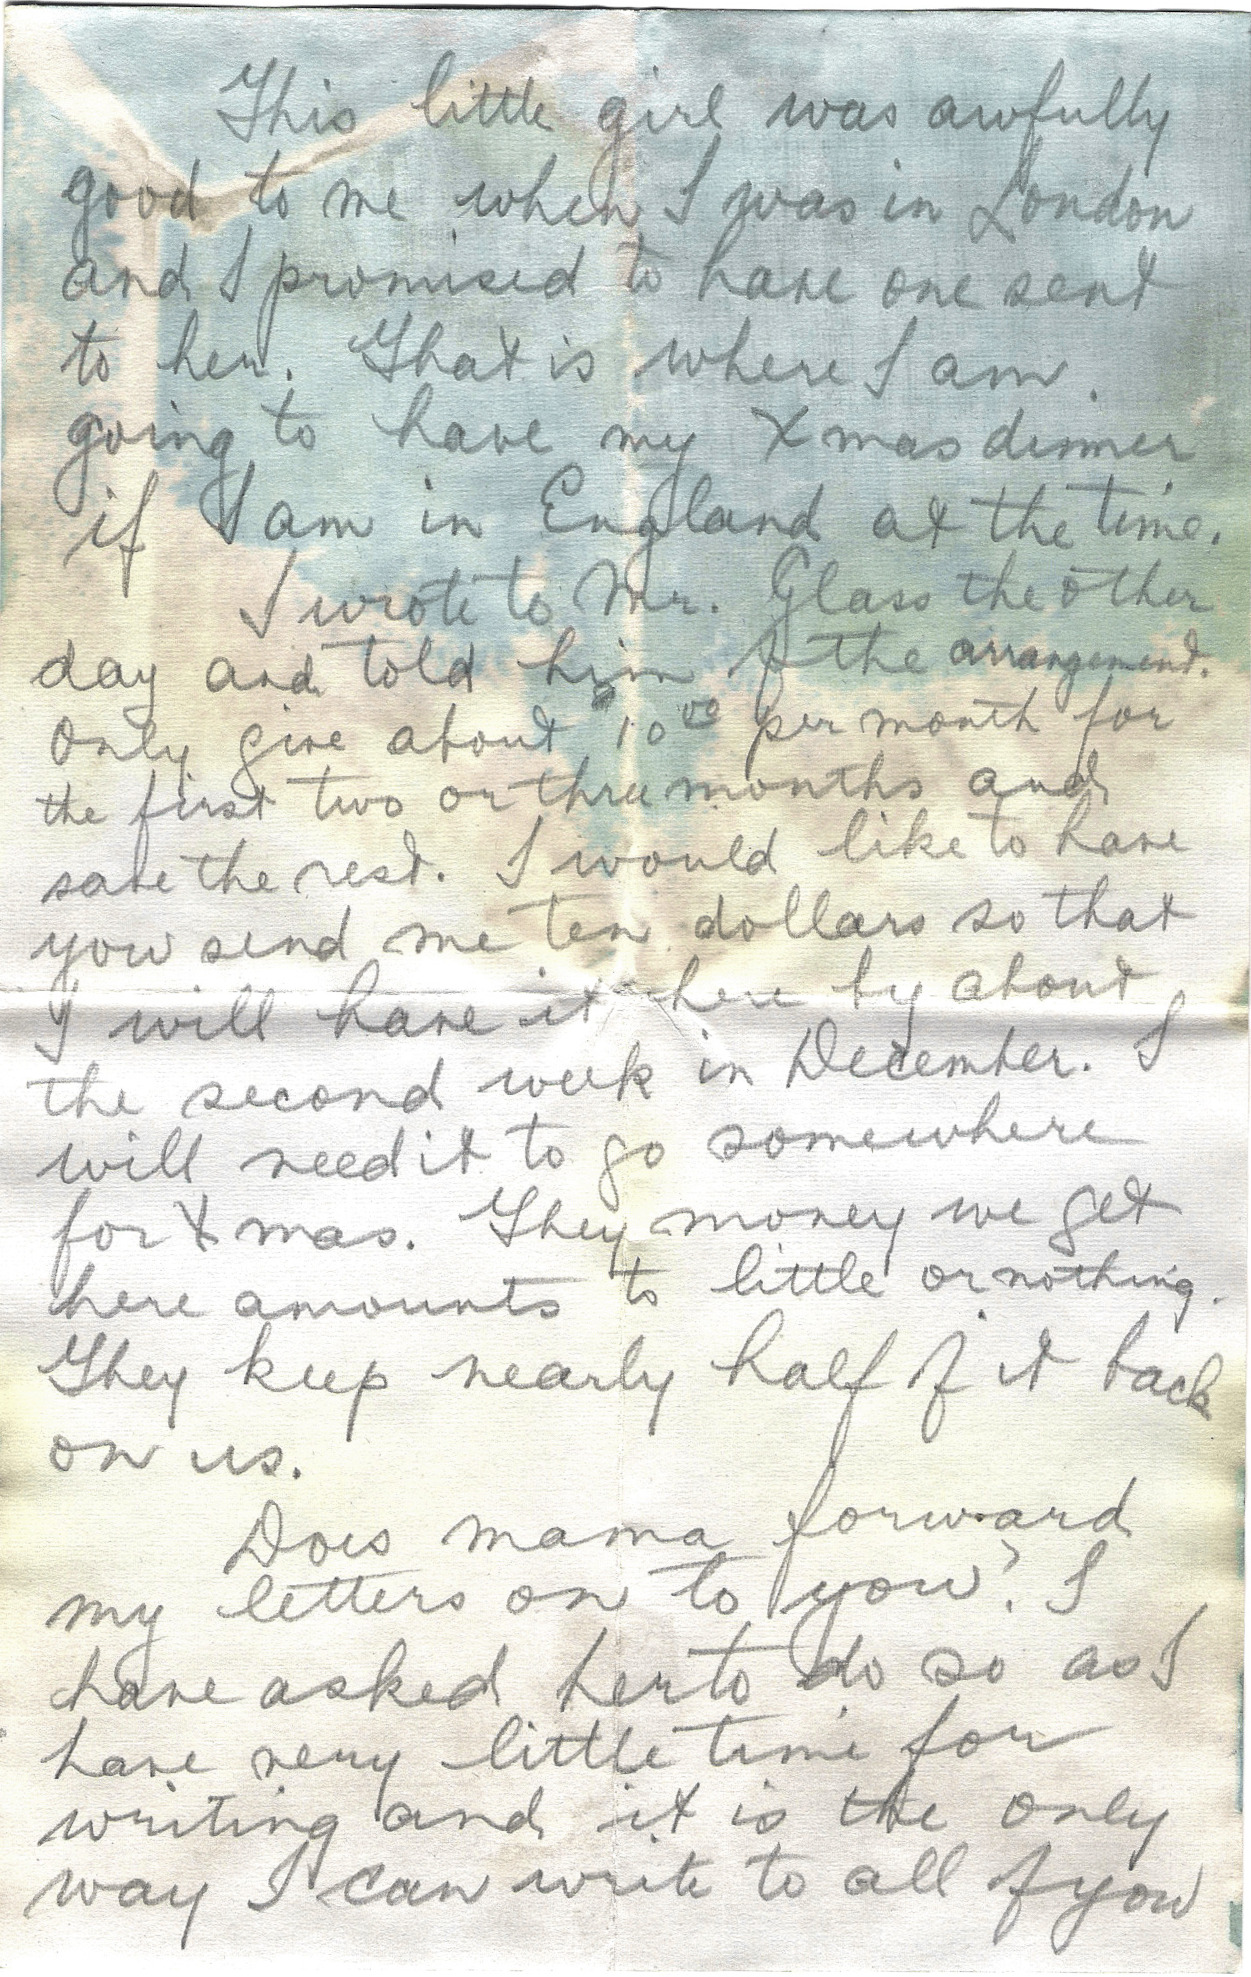 This little girl was awfully
good to me when I was in London
and I promised to have one sent
to her. That is where I am
going to have my Xmas dinner
if I am in England at the time.
I wrote to Mr. Glass the other
day and told him of the arrangement.
Only give about 10⁰⁰ per month for
the first two or three months and
save the rest. I would like to have
you send me ten dollars so that
I will have it here by about
the second week in December. I
will need it to go somewhere
for Xmas. They money we get
here amounts to little or nothing.
They keep nearly half of it back
on us.
Does mama forward
my letters on to you? I
have asked her to do so as I
have very little time for
writing and it is the only
way I can write to all of you